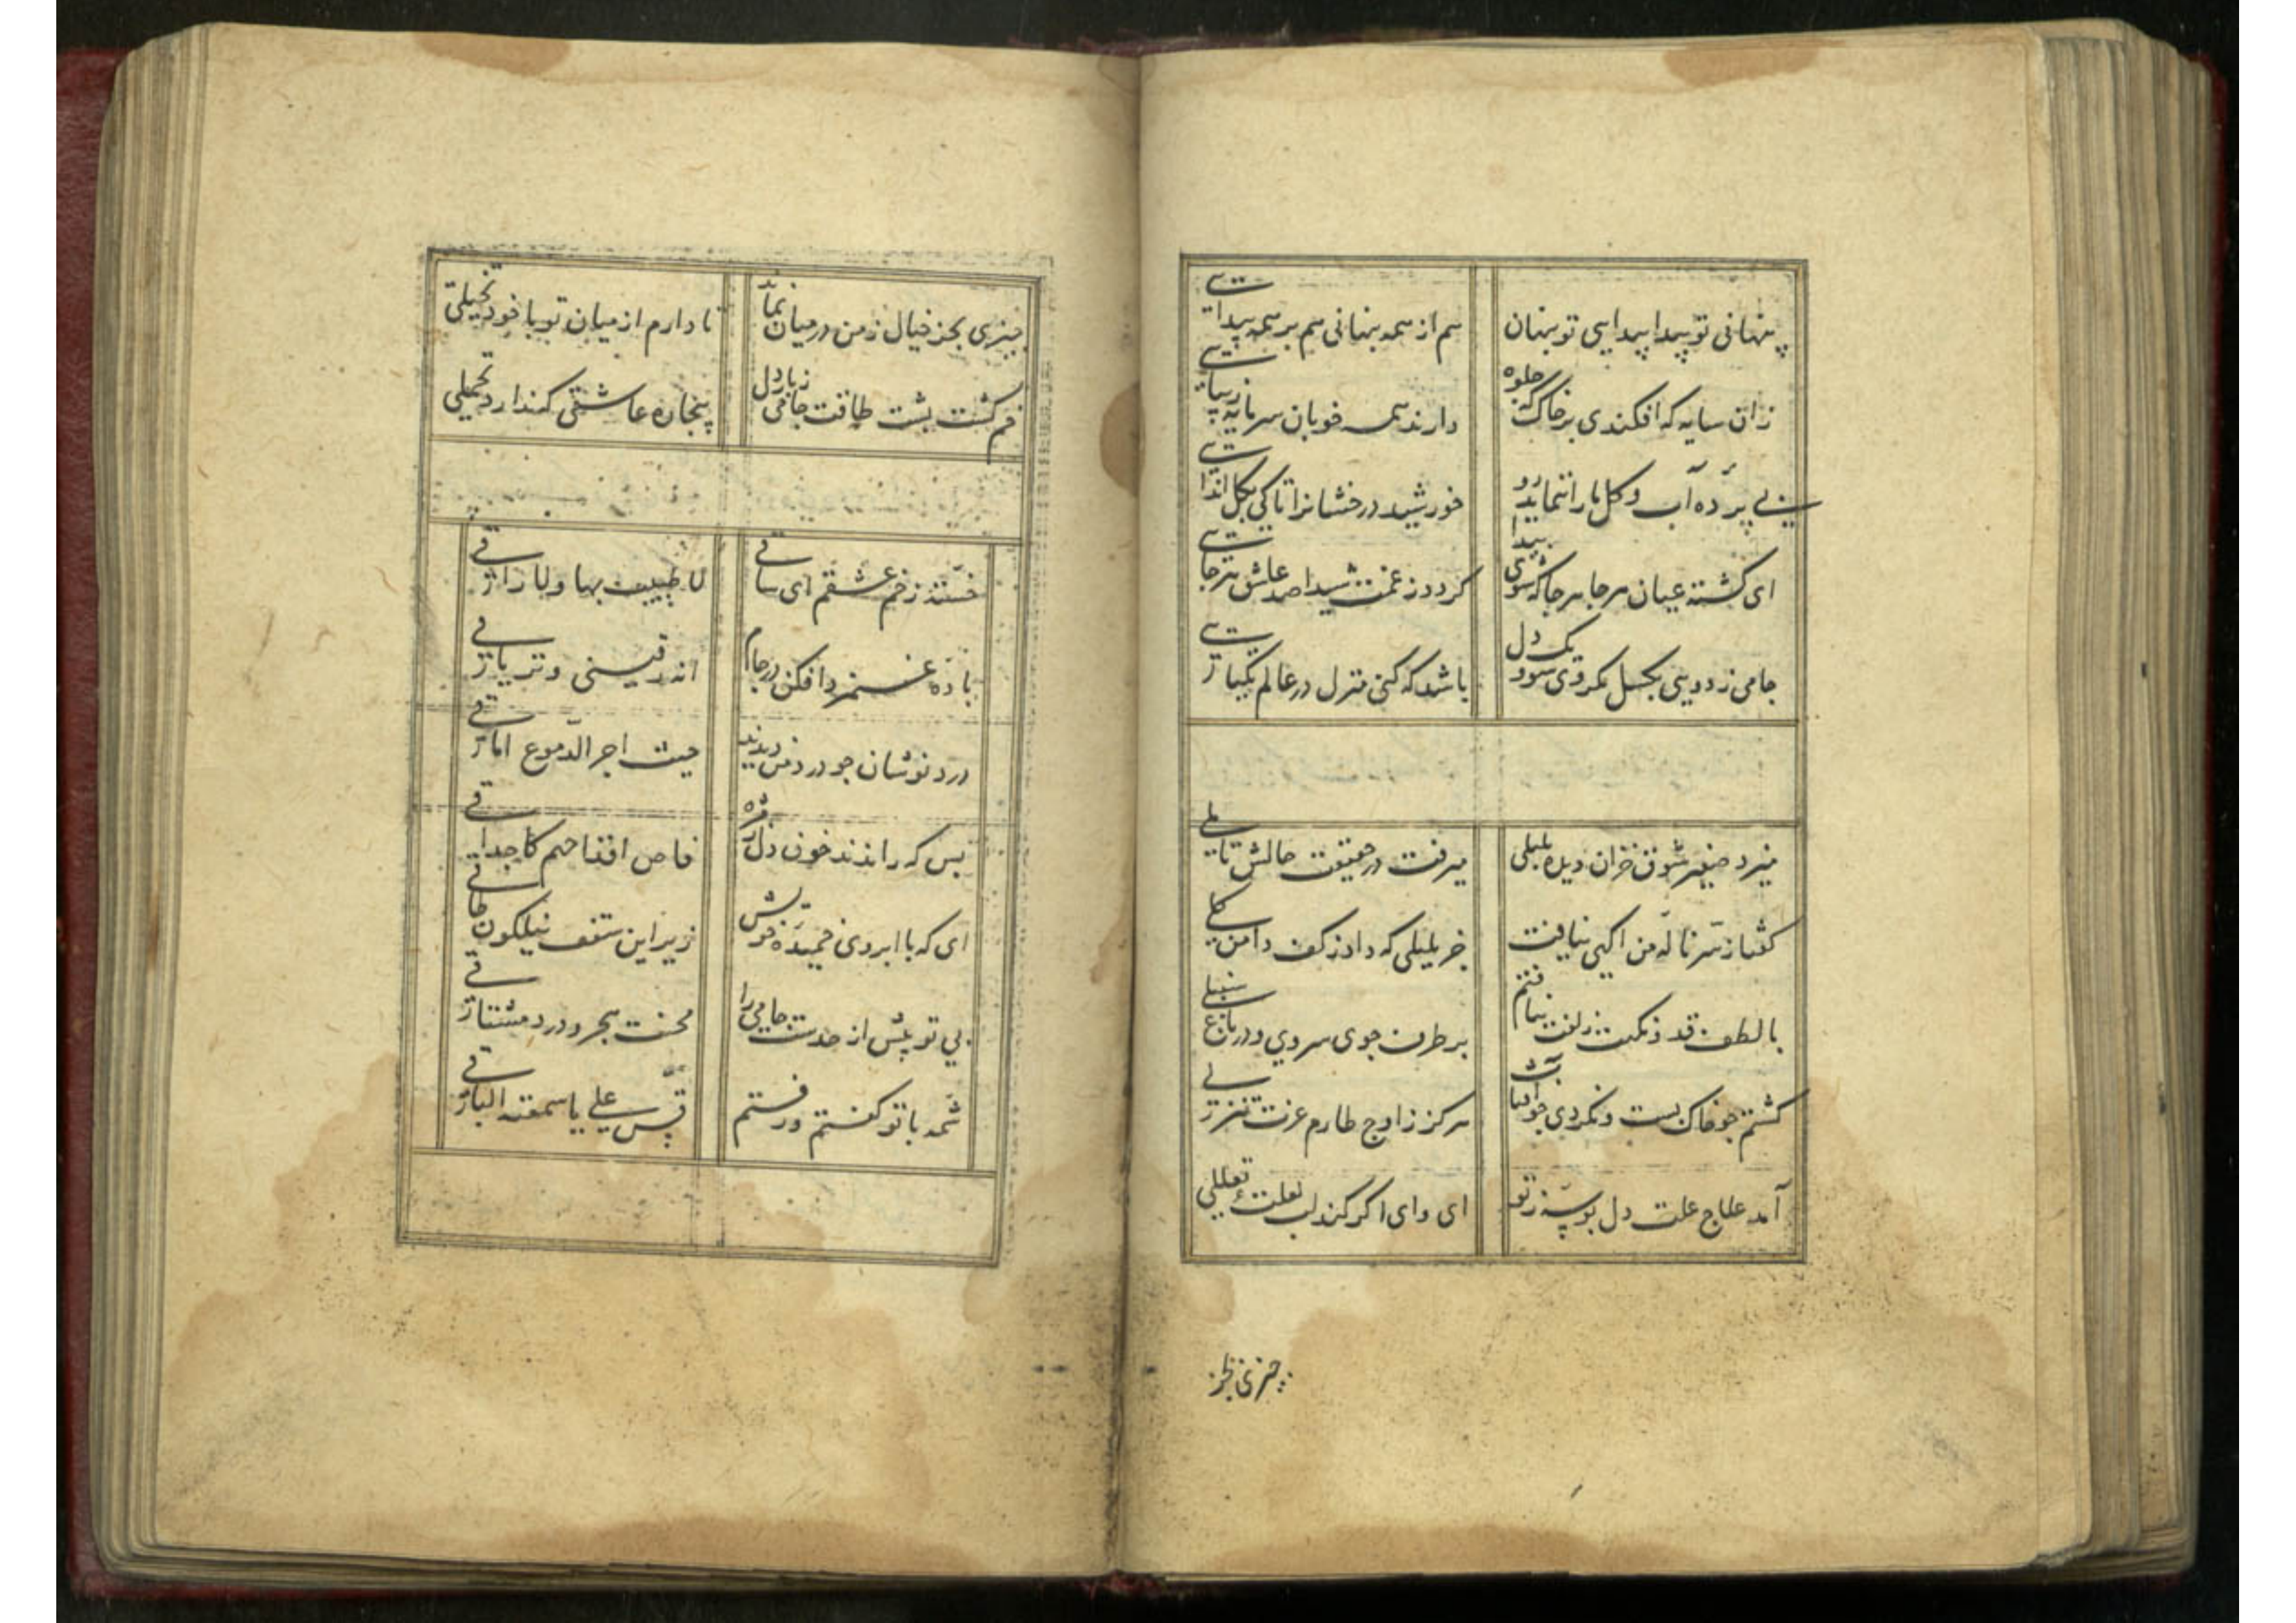 پنهانی تو پیدا پیدایی تو پنهان
هم از همه پنهانی هم بر همه پیدائی
زان سایه که افکندی بر خاک که جلوه
دارند همه خوبان سرمایه زیبائی
بی پرده آب و گل ما را ننماید رو
خورشید درخشانرا تا کی بگل اندائی
ای گشته عیان هر جا هر جا که شوی پیدا
گردد ز غمت شیدا صد عاشق هر جائی
جامی ز دویی بگسل یک روی شو و یک دل
باشد که کنی منزل در عالم یکتائی
میزد صفیر شوق خزان دیده بلبلی
میرفت در حقیقت حالش تاملی
گفتا ز سر ناله من اگهی نیافت
جز بلبلی که داد ز کف دامن گلی
با لطف قد و نکهت زلفت نیافتم
بر طرف جوی سروی و در باغ سنبلی
گشتم چو خاک پست و نکردی چو آفتاب
هرگز ز اوج طارم عزت تنزلی
آمد علاج علت دل بوسه ز تو
ای وای اگر کند لب لعلت تعللی
چیزی بجز
چیزی بجز خیال ز من در میان نماند
تا دارم از میان تو با خود تخیلی
خم گشت پشت طاقت جامی ز بار دل
بیچاره عاشقی که ندارد تحملی
خستند زخم عشقم ای ساقی
لا طبیب بها ولا راقی
باده غم‌زدا فکن در جام
اند فینی و تریاقی
درد نوشان چو درد من دیدند
حیث اجر الدموع اماقی
بس که راندند خون دل ز مژه
فاض اقداحهم کاحداقی
ای که با ابروی خمیده خوش
زیر این سقف نیلگون طاقی
بی تو بیش از حدست جامی را
محنت هجر و درد مشتاقی
شمه با تو گفتم و رفتم
قس علی ما سمعته الباقی